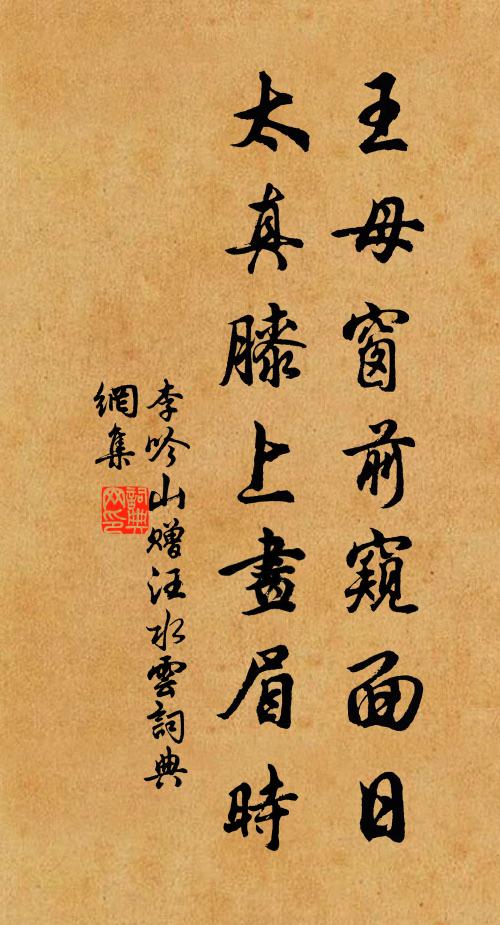 王母窗前窺面日
太真膝上畫眉時
李吟山贈汪水雲詞典
網集
詞典
网印